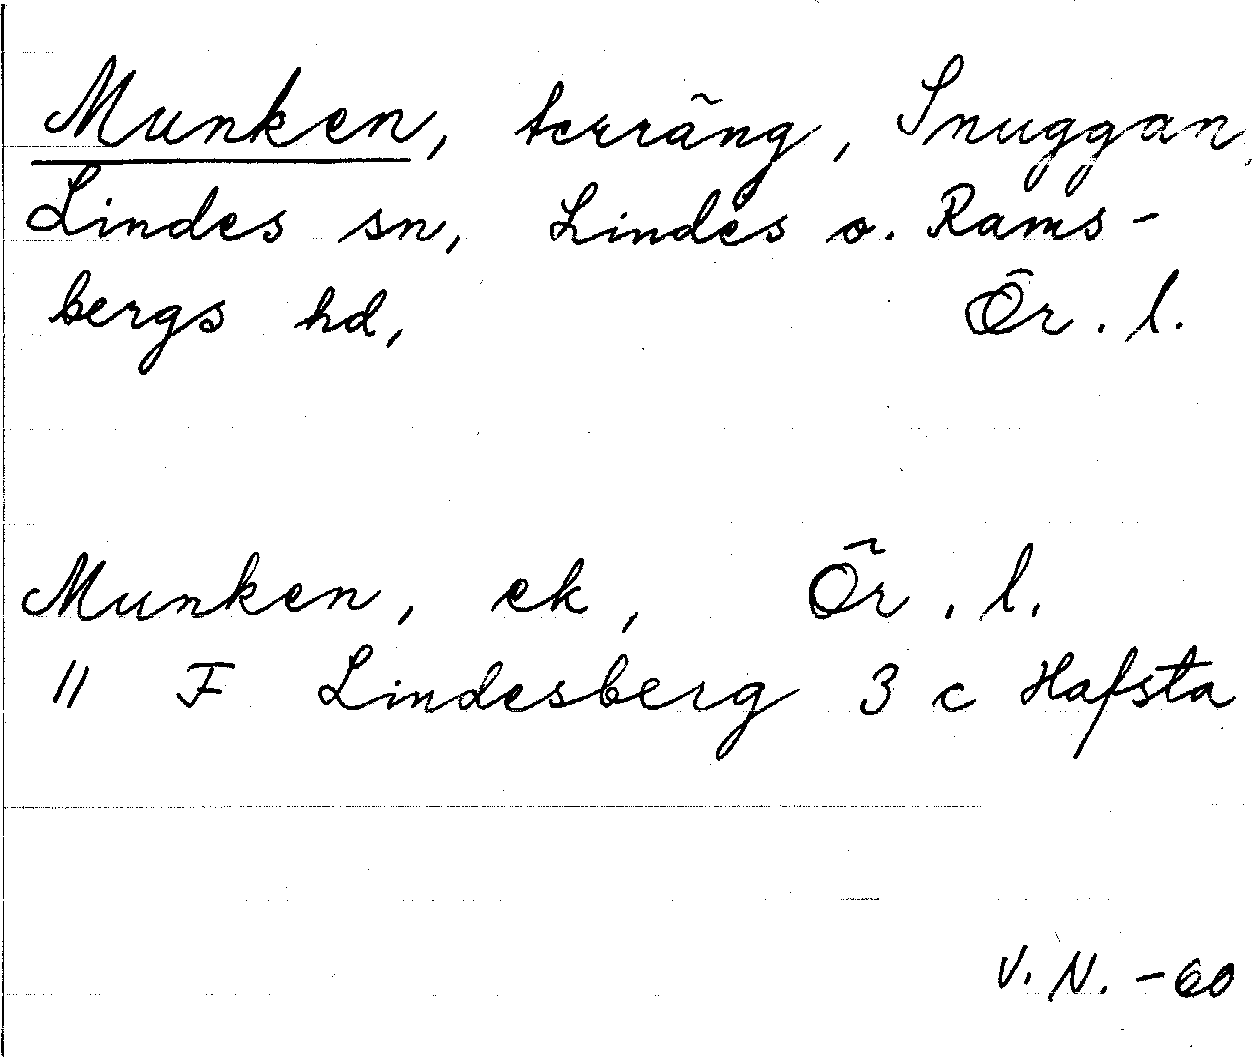 Munken, terräng, Snuggan,
Lindes sn, Lindes o. Rams-
bergs hd, Ör. l.
Munken, ek, Ör. l.
11 F Lindesberg 3 c Hafsta
V. N. -60